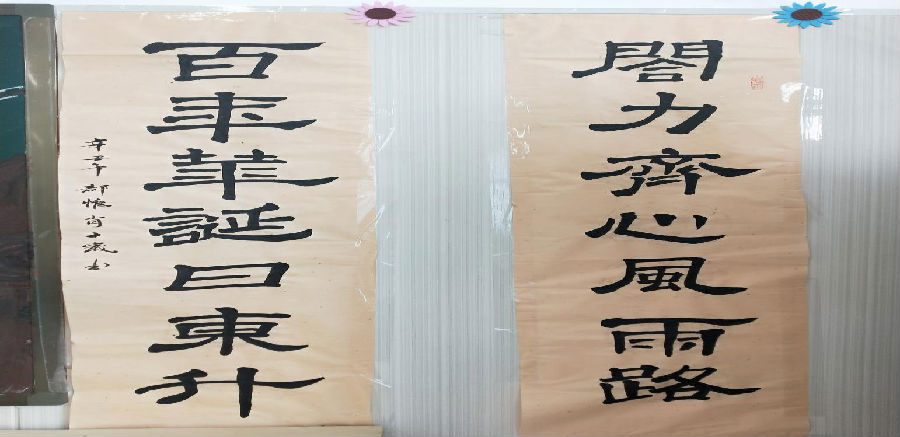 閤力齊心風雨路
百年華誕日東升
辛丑年